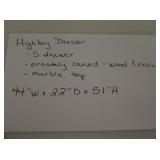 Highboy Dresser
- 5 drawer
- ornately carved - wood & resin
- marble top
44"W x 22"D x 51"H